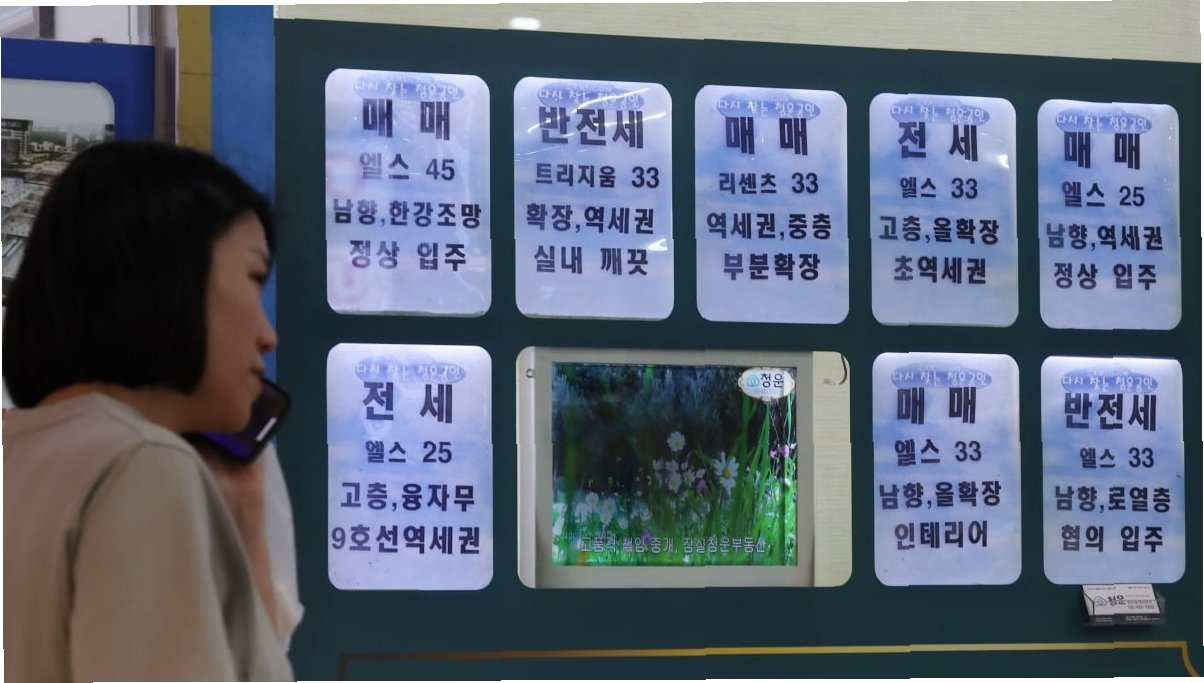 다시 찾는 청운공인
매 매
엘스 45
남향,한강조망
정상 입주
다시 찾는 청운공인
반전세
트리지움 33
확장,역세권
실내 깨끗
다시 찾는 청운공인
매 매
리센츠 33
역세권,중층
부분확장
다시 찾는 청운공인
전 세
엘스 33
고층,올확장
초역세권
다시 찾는 청운공인
매 매
엘스 25
남향,역세권
정상 입주
다시 찾는 청운공인
전 세
엘스 25
고층,융자무
9호선역세권
청운
고품격,책임 중개, 잠실청운부동산,
다시 찾는 청운공인
매 매
엘스 33
남향,올확장
인테리어
다시 찾는 청운공인
반전세
엘스 33
남향,로열층
협의 입주
청운